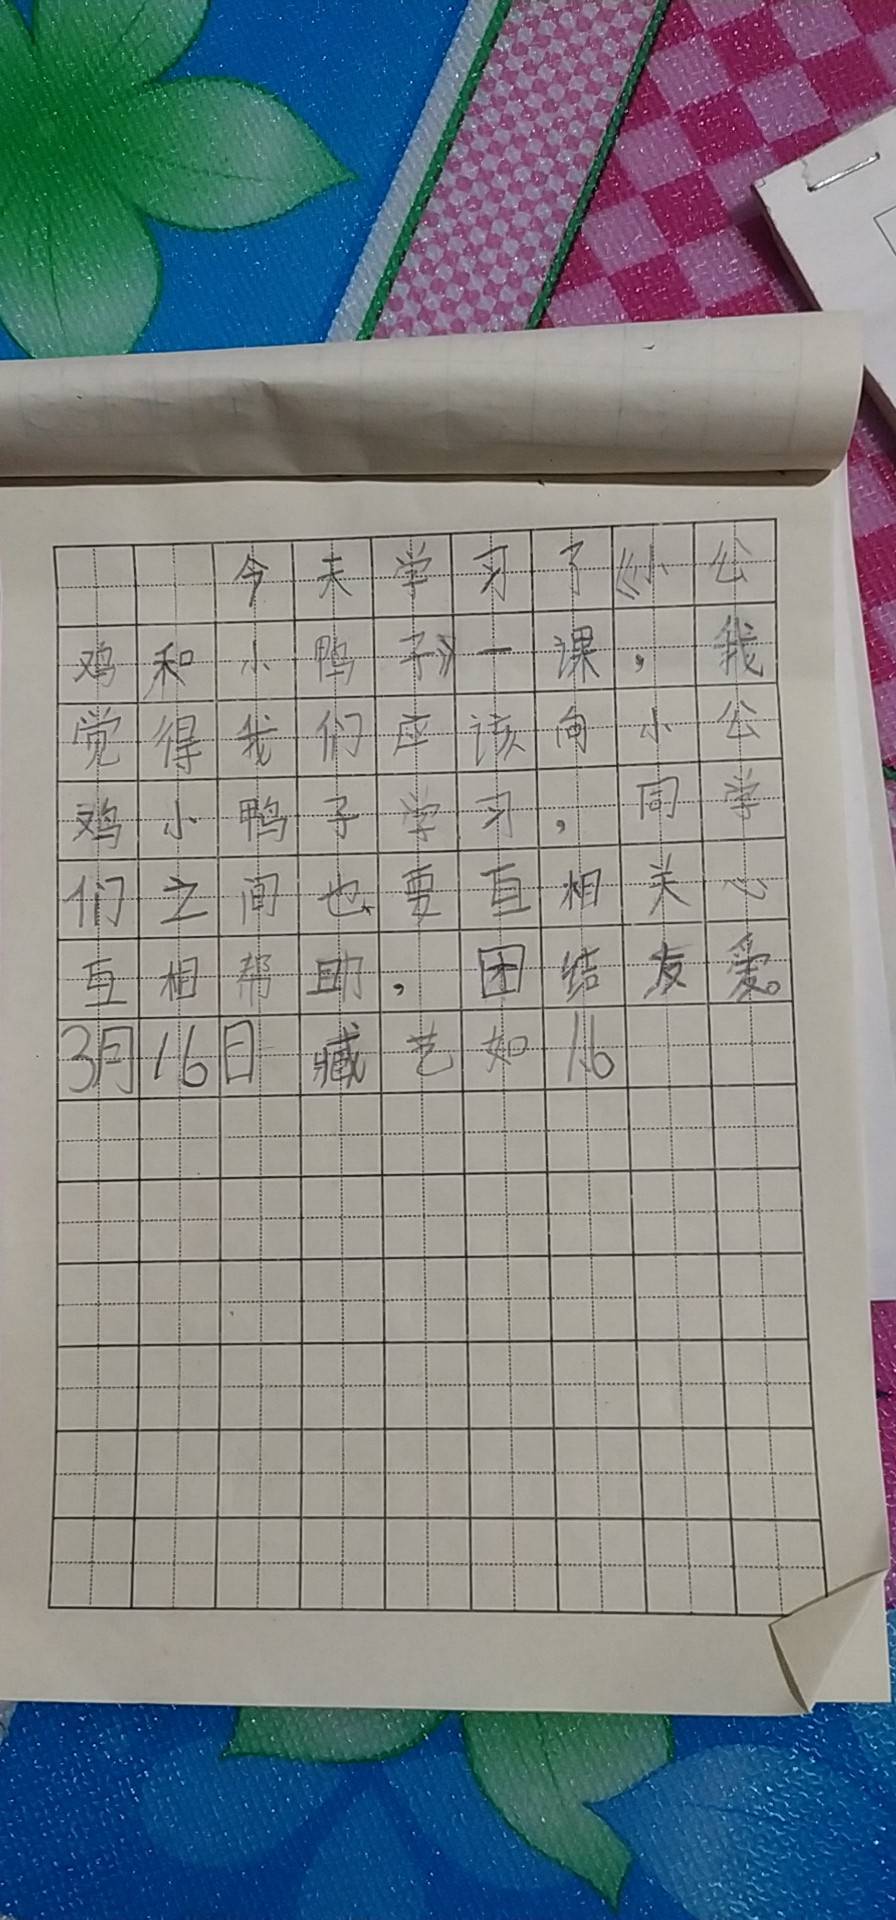 今天学习了《小公
鸡和小鸭子》一课，我
觉得我们应该向小公
鸡小鸭子学习，同学
们之间也要互相关心
互相帮助，团结友爱。
3月16日 臧艺如16